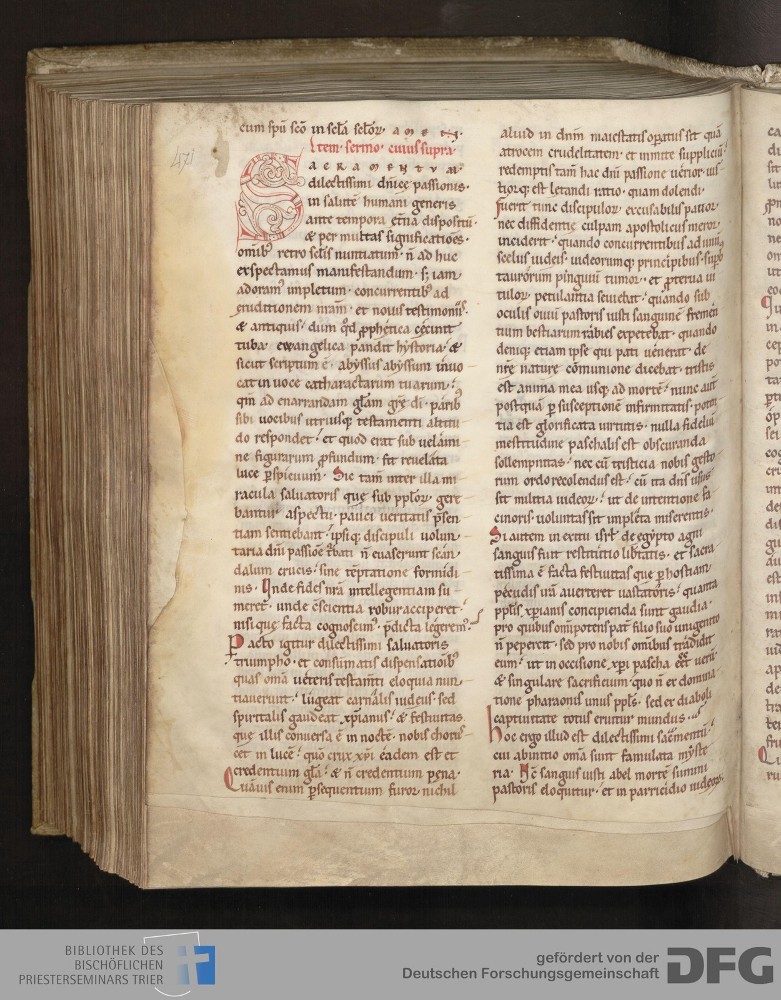 471
cum spu sco in scla sclor. amen.
Item sermo. cuius supra.
SACRAMENTVM
dilectissimi dnice passionis.
in salute humani generis
ante tempora etna dispositu
& per multas significatioes.
omib; retro sclis nuntiatum. n ad huc
exspectamus manifestandum. s; iam
adoram' impletum. concurrentib; ad
eruditionem nram. et nouis testimoniis.
& antiquis. dum qd pphetica cecinit
tuba. ewangelica pandit hystoria. &
sicut scriptum e. abyssus abyssum inuo
cat in uoce catharactarum tuarum.
qm ad enarrandam glam gre di. parib'
sibi uocibus utriusq; testamenti altitu
do respondet. et quod erat sub uelami
ne figurarum pfundum. fit reuelata
luce pspicuum. Sic tam inter illa mi
racula saluatoris que sub pplor. gere
bantur aspectu. pauci ueritatis psen
tiam sentiebant. ipsiq; discipuli uolun
taria dni passioe tbati n euaserunt scan
dalum crucis. sine teptatione formidi
nis. Unde fides nra intellegentiam su
meret. unde cscientia robur acciperet.
nisi que facta cognoscim'. pdicta legerem'.
Pacto igitur dilectissimi saluatoris
triumpho. et consumatis dispensatioib'
quas oma ueteris testamti eloquia nun
tiauerunt. lugeat carnalis iudeus. sed
spiritalis gaudeat xpianus. & festiuitas
que illis conuersa e in nocte. nobis chorus
cet in luce. quo crux xpi eadem est et
credentium gla. & n credentium pena.
Quauis enim psequentium furor. nichil
aliud in dnm maiestatis opatus sit qua
atrocem crudelitatem. et inmite suppliciu.
redemptis tam hac dni passione uerior. ius
tiorq; est letandi ratio. quam dolendi.
fuerit tunc discipulor. excusabilis pauor.
nec diffidentie culpam apostolicus meror
inciderit. quando concurrentibus ad unu
scelus iudeis. iudeorumq; principibus. supb'
taurorum pinguiu tumor. et pterua ui
tulor. petulantia seuiebat. quando sub
oculis ouiu pastoris iusti sanguine fremen
tium bestiarum rabies expetebat. quando
deniq; etiam ipse qui pati uenerat. de
nre nature comunione dicebat. tristis
est anima mea usq; ad morte. nunc aut
postqua p susceptione infirmitatis. poten
tia est glorificata uirtutis. nulla fideliu
mestitudine paschalis est obscuranda
sollempnitas. nec cu tristicia nobis gesto
rum ordo recolendus est. cu ita dns usus
sit militia iudeor. ut de intentione fa
cinoris. uoluntas sit impleta miserentis.
Si autem in exitu isrl' de egypto agni
sanguis fuit restitutio libtatis. et sacra
tissima e facta festiuitas que p hostiam
pecudis ira auerteret uastatoris. quanta
pplis xpianis concipienda sunt gaudia.
pro quibus omipotens pat filio suo unigenito
n pepercit. sed pro nobis omibus tradidit
eum. ut in occisione xpi pascha eet ueru.
& singulare sacrificium. quo n ex domina
tione pharaonis unus ppls. sed ex diaboli
captiuitate totus erutur mundus.
Hoc ergo illud est dilectissimi sacmentu.
cui abinitio oma sunt famulata myste
ria. Hc sanguis iusti abel morte summi
pastoris eloquitur. et in parricidio iudeor.
BIBLIOTHEK DES
BISCHÖFLICHEN
PRIESTERSEMINARS TRIER
gefördert von der
Deutschen Forschungsgemeinschaft
DFG